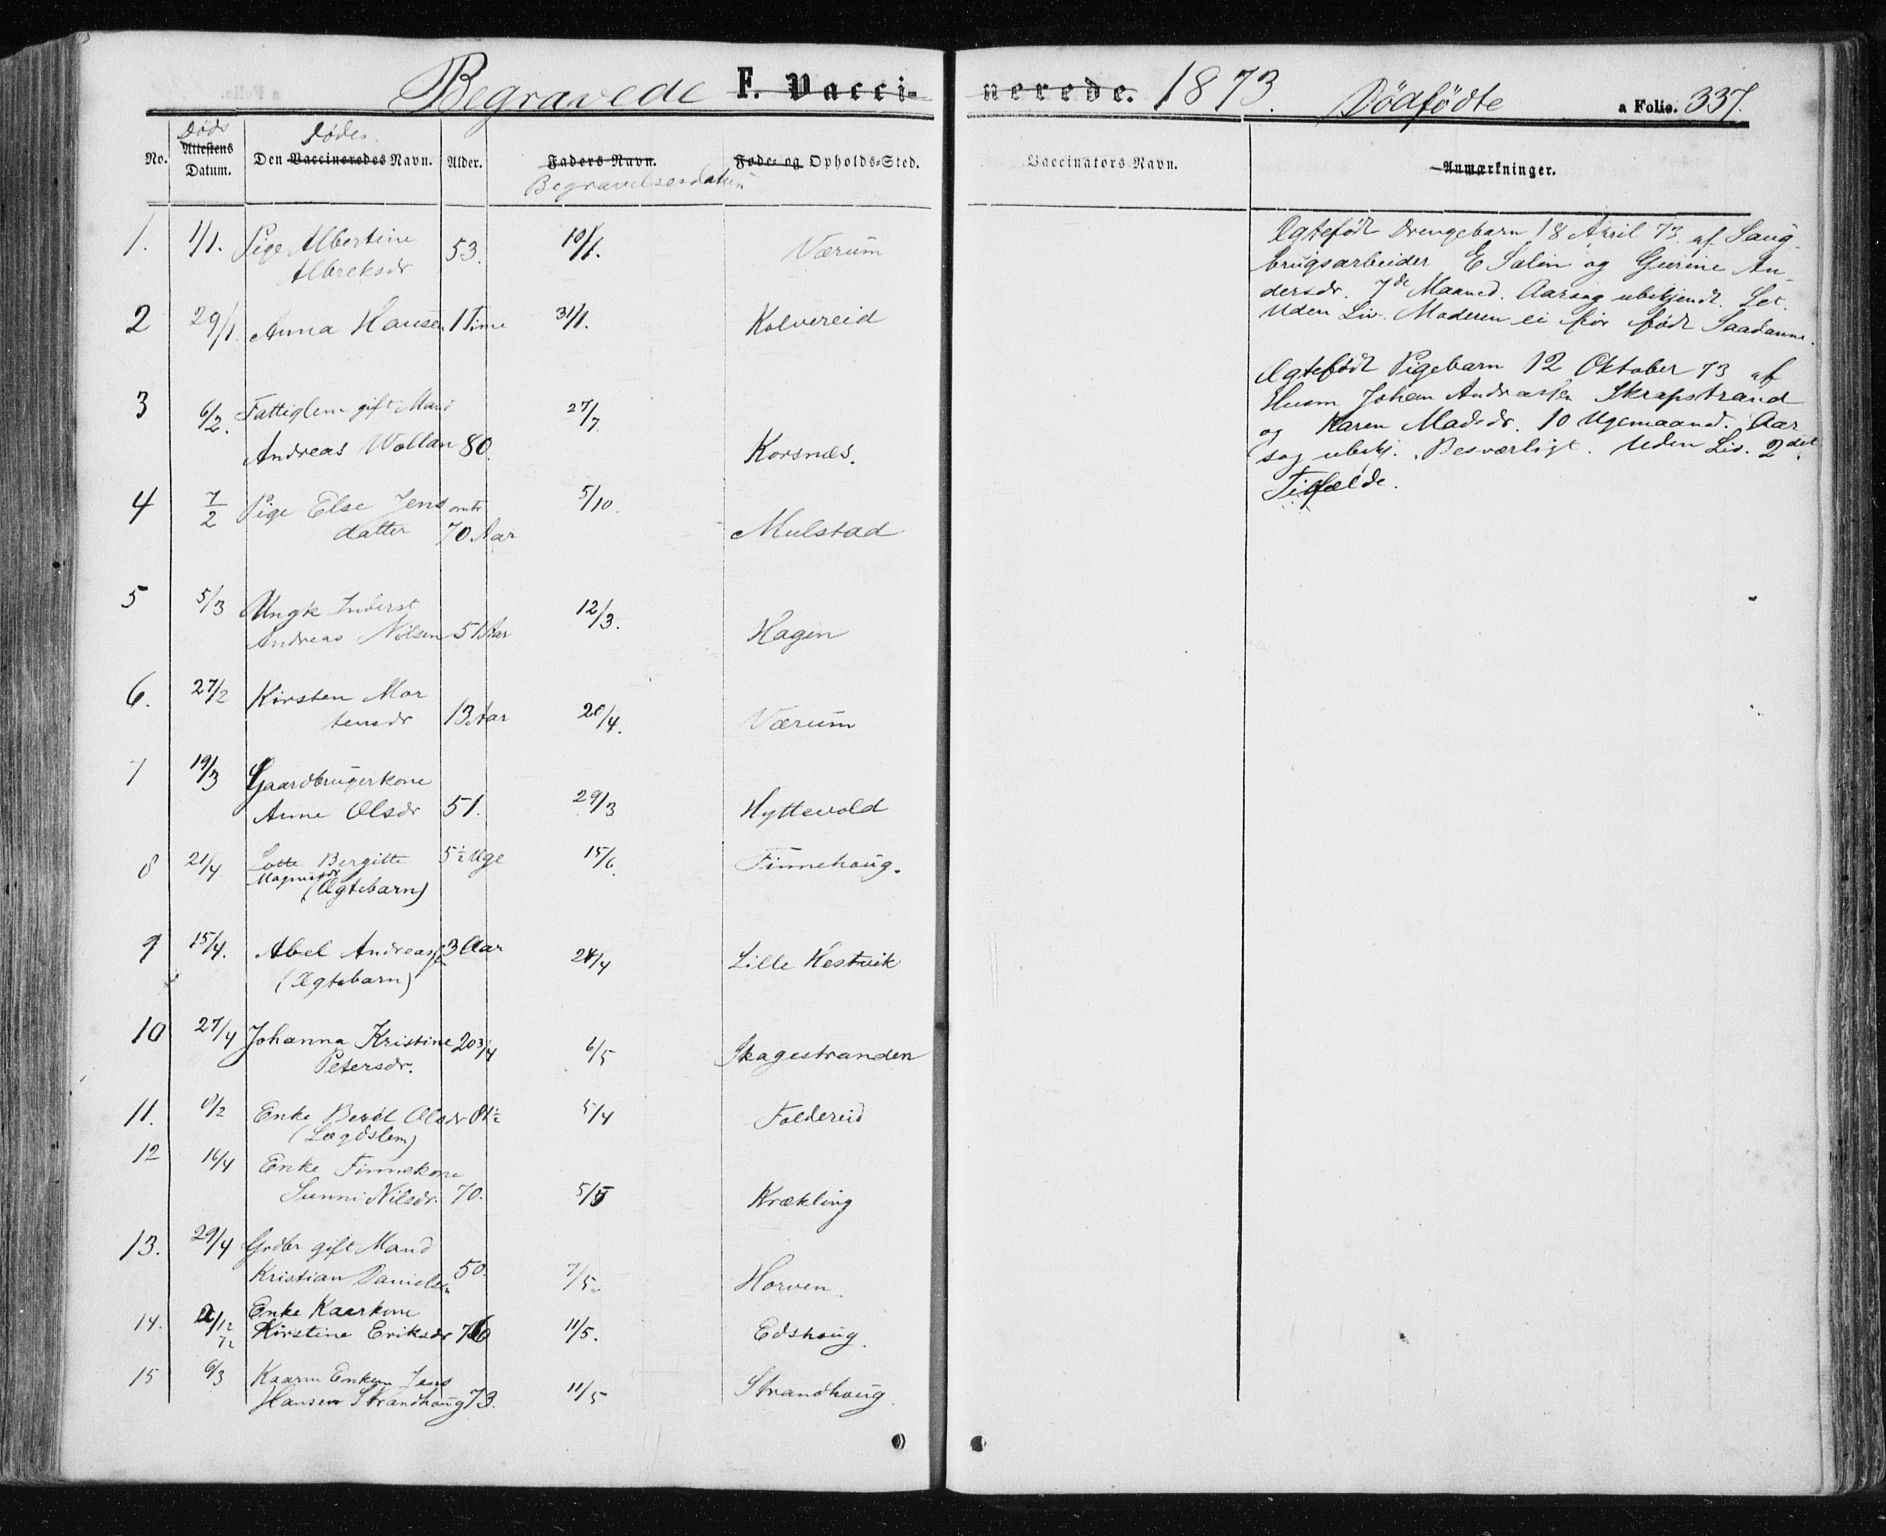 Begravede F. Vacci-
nerede. 1873. Dødfødte a Folio. 337.
No. Døds Attestens Datum. Den Dødes Vaccineredes Navn. Alder. Faders Navn. Begravelsesdatum Føde- og Opholds-Sted. Vaccinators Navn. Anmærkninger.
1. 1/1. Pige Albertine
Albreksdr 53. 10/1. Værum
2 29/1. Anna Hansen 1 Time 31/1. Kolvereid
3 6/2. Fattiglem gift Mand 27/7.
Andreas Wollan 80. Korsnæs.
4 7/2 Pige Else Jens omtr 5/10.
datter 70 Aar Mulstad
5 5/3 Ungk Inderst 12/3.
Andreas Nilsen 51 Aar Hagen
6. 27/2 Kirsten Mor
tensdr 13 Aar 20/4. Værum
7 19/3 Gaardbrugerkone
Anne Olsdr 51. 29/3 Hyttevold
8 21/4 Lotte Bergitte 5½ Uge 15/6. Finnehoug.
Magnusdr
(Ægtebarn)
9 15/4. Abel Andreassen 3 Aar 24/4 Lille Hestvik
(Ægtebarn)
10 27/4 Johanna Kristine 20 3/4 6/5 Skagestranden
Petersdr.
11. 8/2 Enke Berit Olsdr 81½ 5/4 Foldereid
(Lægdslem)
12 16/4 Enke Finnekone
Sunni Nilsdr. 70. 5/5 Krækling
13. 29/4 Grdbr gift Mand
Kristian Danielsen 50. 7/5. Horven.
14. /12 72 Enke Kaarkone
Kirstine Eriksdr 76 11/5. Edshoug.
15 6/3 Kaarm Enkem Jens
Hansen Strandhoug 73. 11/5 Strandhoug.
Ægtefødt Drengebarn 18 April 73 af Saug-
brugsarbeider E Salin og Gurine An-
dersdr. 7de Maaned. Aarsag ubekjendt. Let.
Uden Liv. Moderen ei før født Saadanne.
Ægtefødt Pigebarn 12 Oktober 73 af
Husm Johan Andreassen Skrapstrand
og Karen Madsdr. 10 Ugemaaned. Aar
sag ubekj. Besværligt. Uden Liv. 2det
Tilfælde.